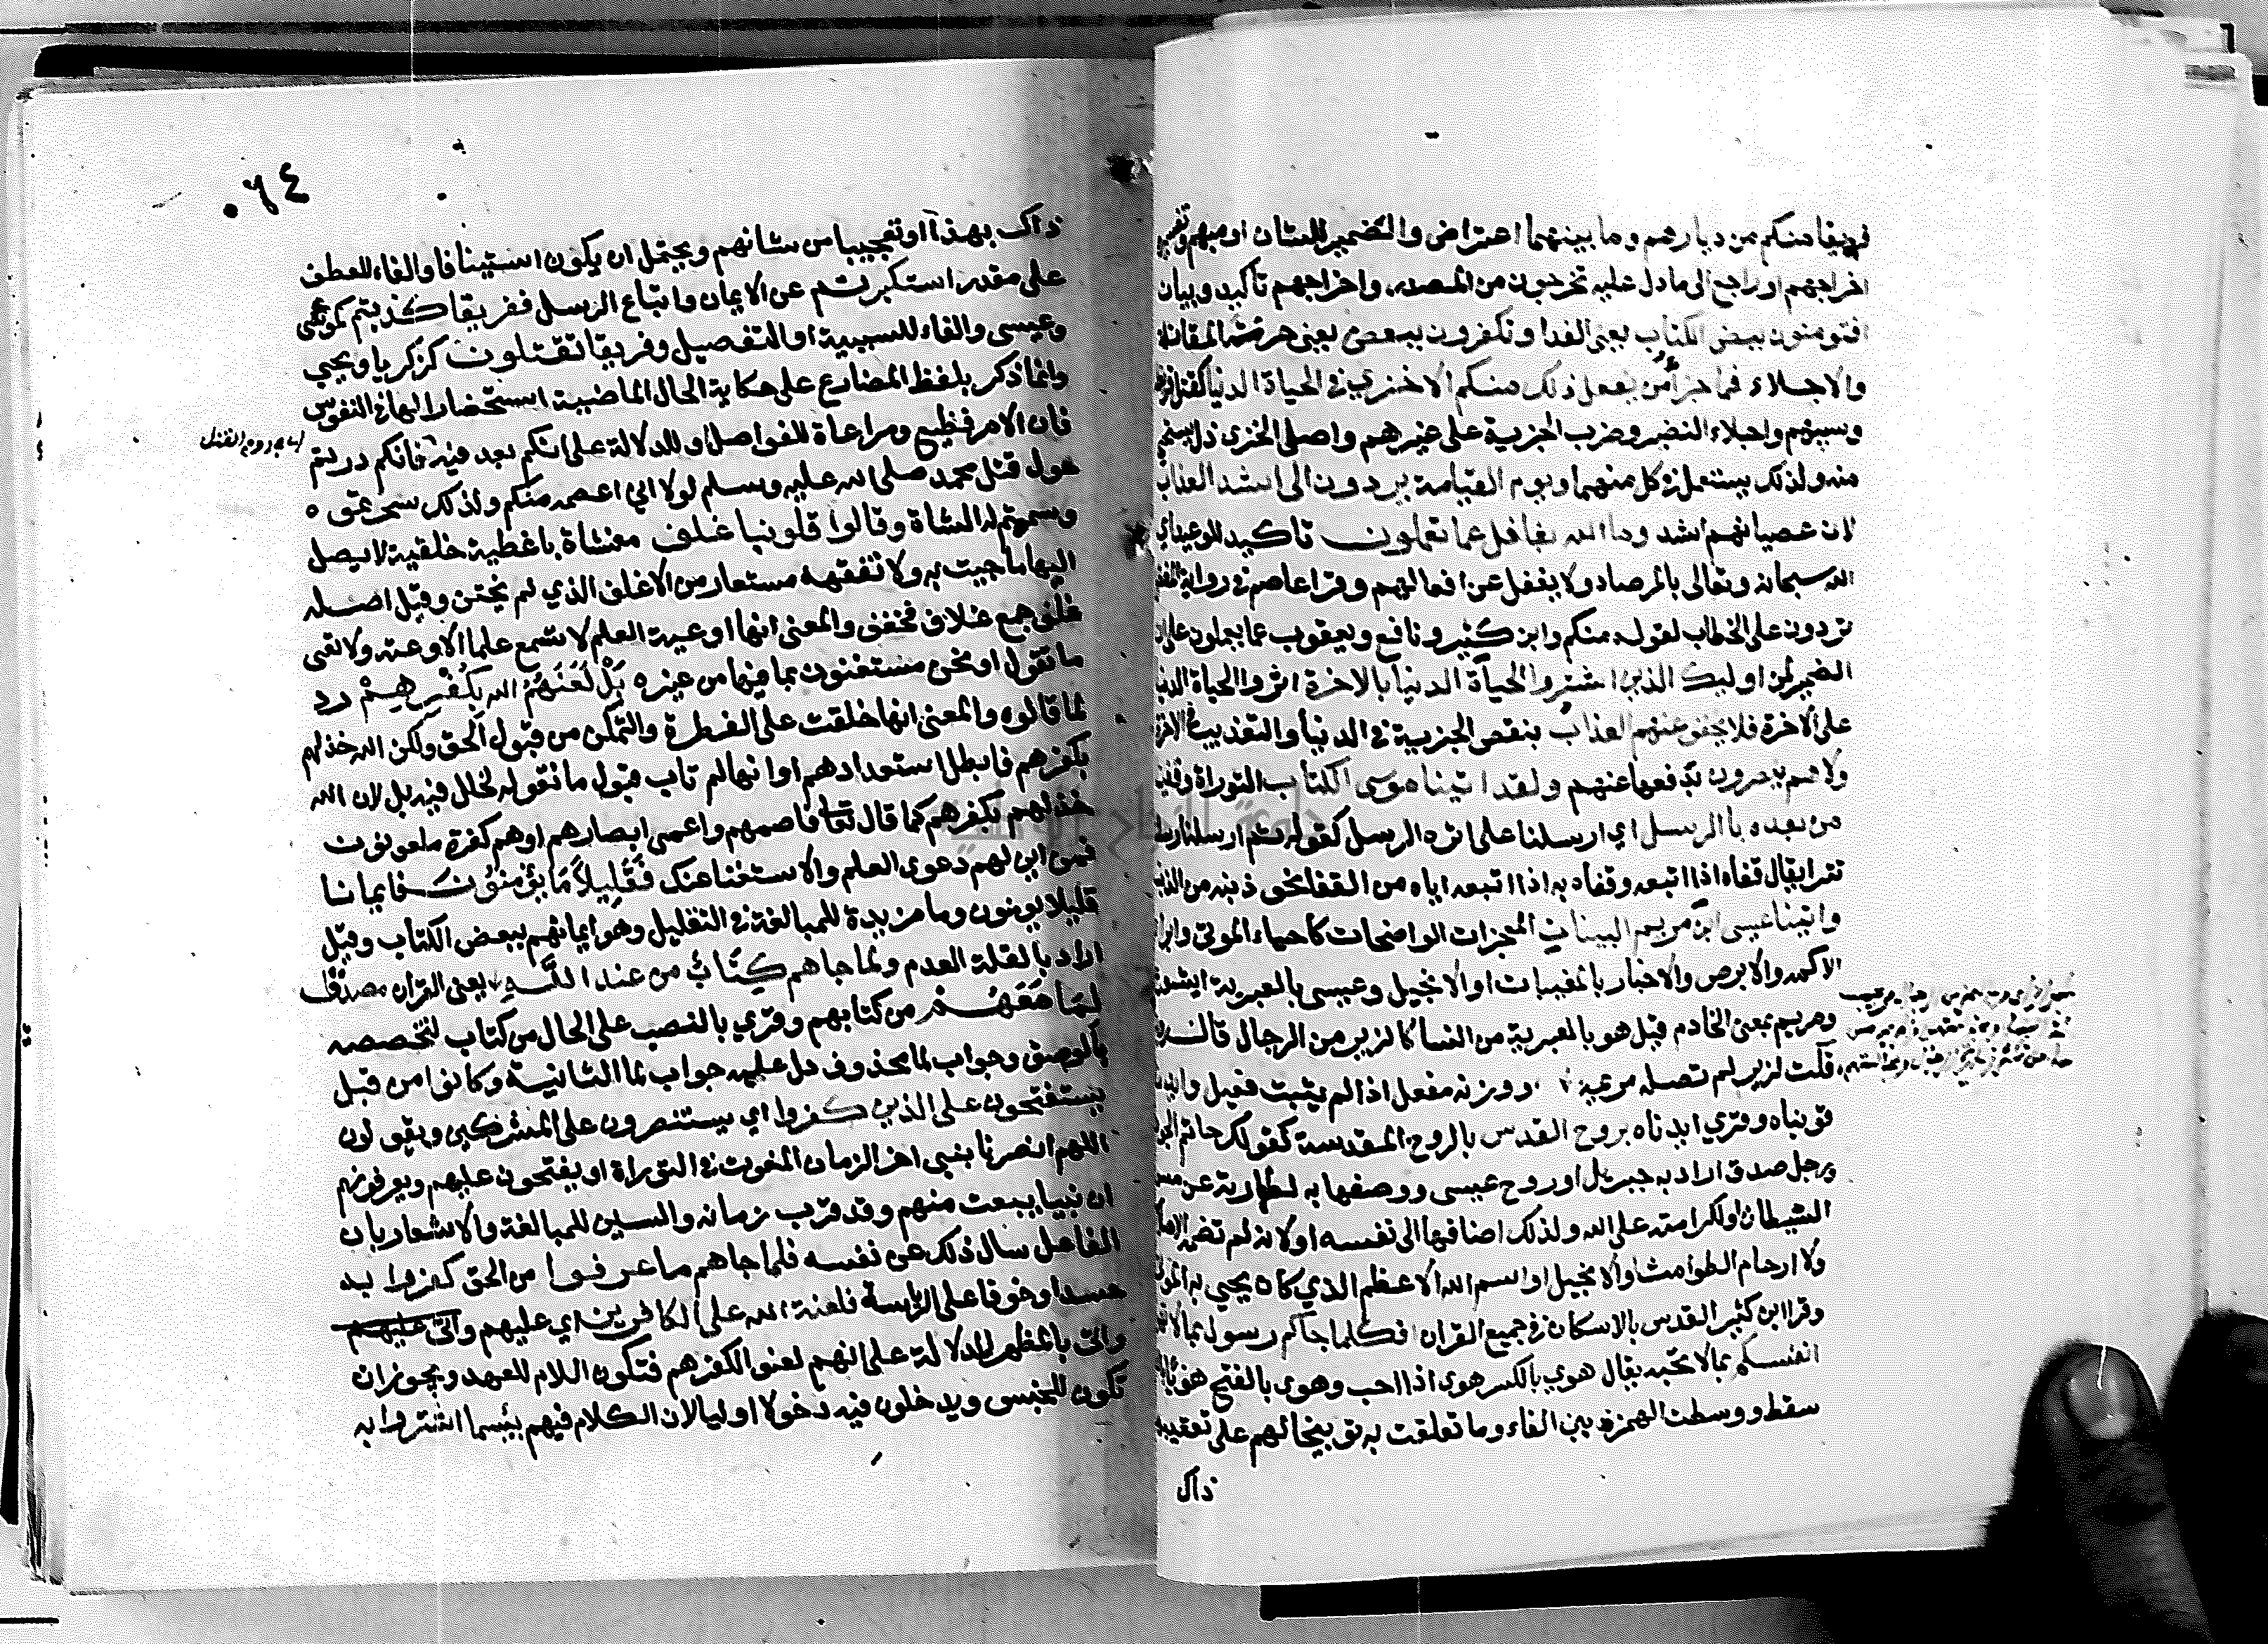 فريقا منكم من ديارهم وما بينهما اعتراض والضمير للشان او مبهم وتفسيره
اخراجهم او راجع الى ما دل عليه تخرجون من المصدر واخراجهم تاكيد وبيان
افتومنون ببعض الكتاب يعني الفدا وتكفرون ببعض يعني حرمة المقاتلة
والاجلاء فما جزاء من يفعل ذلك منكم الا خزي في الحياة الدنيا كقتل
وسبيهم واجلاء النضير وضرب الجزية على غيرهم واصل الخزي ذل يستحي
منه ولذلك يستعمل في كل منهما ويوم القيامة يردون الى اشد العذاب
لان عصيانهم اشد وما الله بغافل عما تعملون تاكيد للوعيد اي
الله سبحانه وتعالى بالمرصاد ولا يغفل عن افعالهم وقرا عاصم في رواية المفضل
تردون على الخطاب لقوله منكم وابن كثير ونافع ويعقوب عما يعملون على ان
الضمير لمن اوليك الذين اشتروا الحياة الدنيا بالاخرة اثروا الحياة الدنيا
على الاخرة فلا يخفف عنهم العذاب بنقص الجزية في الدنيا والتعذيب في الاخرة
ولا هم ينصرون بدفعها عنهم ولقد اتينا موسى الكتاب التوراة وقفينا
من بعده بالرسل اي ارسلنا على اثره الرسل كقوله ثم ارسلنا رسلنا
تترا يقال قفاه اذا اتبعه وقفاه به اذا اتبعه اياه من القفا نحو ذنبه من الذنب
واتينا عيسى ابن مريم البينات المعجزات الواضحات كاحياء الموتى وابراء
الاكمه والابرص والاخبار بالمغيبات او الانجيل وعيسى بالعبرية ايشوع
ومريم بمعنى الخادم قيل هو بالعبرية من النسا كالزير من الرجال قال
قلت لزير لم تصله مريمه ووزنه مفعل اذا لم يثبت فعيل وايدناه
قويناه وقري ايدناه بروح القدس بالروح المقدسة كقولك حاتم الجود
ورجل صدق اراد به جبريل او روح عيسى ووصفها به لطهارته عن مس
الشيطان او لكرامته على الله ولذلك اضافها الى نفسه او لانه لم تضمه الاصلاب
ولا ارحام الطوامث او الانجيل او اسم الله الاعظم الذي كان يحيي به الموتى
وقرا ابن كثير القدس بالاسكان في جميع القران افكلما جاكم رسول بما لا تهوى
انفسكم بما لا تحبه يقال هوي بالكسر هوى اذا احب وهوى بالفتح هويا
سقط ووسطت الهمزة بين الفاء وما تعلقت به توبيخا لهم على تعقيبهم
ذاك
٠٦٤
ذاك بهذا او تعجيبا من شانهم ويحتمل ان يكون استينافا والفاء للعطف
على مقدر استكبرتم عن الايمان واتباع الرسل ففريقا كذبتم كموسى
وعيسى والفاء للسببية او التفصيل وفريقا تقتلون كزكريا ويحيي
وانما ذكر بلفظ المضارع على حكاية الحال الماضية استحضارا لها في النفوس
فان الامر فظيع ومراعاة للفواصل او للدلالة على انكم بعد فيه فانكم درتم
حول قتل محمد صلى الله عليه وسلم لولا اني اعصمه منكم ولذلك سحرتموه
وسممتم له الشاة وقالوا قلوبنا غلف مغشاة باغطية خلقية لا يصل
اليها ما جيت به ولا تفقهه مستعار من الاغلف الذي لم يختتن وقيل اصله
غلف جمع غلاف فخفف والمعنى انها اوعية العلم لا تسمع علما الا وعته ولا تعي
ما تقول او نحن مستغنون بما فيها من غيره بل لعنهم الله بكفرهم رد
لما قالوه والمعنى انها خلقت على الفطرة والتمكن من قبول الحق ولكن الله خذلهم
بكفرهم فابطل استعدادهم او انها لم تاب قبول ما تقوله لخلل فيه بل لان الله
خذلهم بكفرهم كما قال تعا فاصمهم واعمى ابصارهم او هم كفرة ملعونون
فمن اين لهم دعوى العلم والاستغنا عنك فقليلا ما يؤمنون فايمانا
قليلا يومنون وما مزيدة للمبالغة في التقليل وهو ايمانهم ببعض الكتاب وقيل
اراد بالقلة العدم ولما جاهم كتاب من عند الله يعني القران مصدق
لما معهم من كتابهم وقري بالنصب على الحال من كتاب لتخصصه
بالوصف وجواب لما محذوف دل عليه جواب لما الثانية وكانوا من قبل
يستفتحون على الذين كفروا اي يستنصرون على المشركين ويقولون
اللهم انصرنا بنبي اخر الزمان المنعوت في التوراة او يفتحون عليهم ويعرفونهم
ان نبيا يبعث منهم وقد قرب زمانه والسين للمبالغة والاشعار بان
الفاعل سال ذلك عن نفسه فلما جاهم ما عرفوا من الحق كفروا به
حسدا وخوفا على الرياسة فلعنة الله على الكافرين اي عليهم واتى عليهم
واتى بالمظهر للدلالة على انهم لعنوا لكفرهم فتكون اللام للعهد ويجوز ان
تكون للجنس ويدخلون فيه دخولا اوليا لان الكلام فيهم بيسما اشتروا به